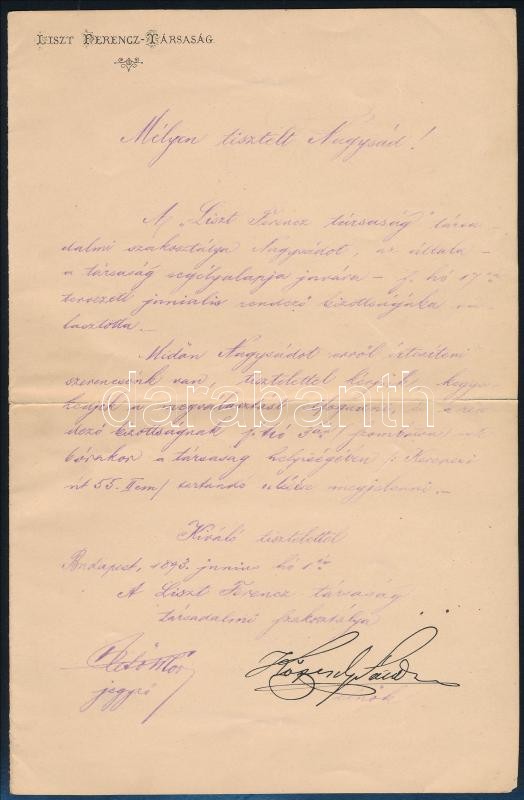 LISZT FERENCZ-TÁRSASÁG.
Mélyen tisztelt Nagysád!
A "Liszt Ferencz társaság" társa-
dalmi szakosztálya Nagysádot, az általa -
a társaság segélyalapja javára - f. hó 17én
tervezett juniális rendező bizottságába vá-
lasztotta. -
Midőn Nagysádot erről értesíteni
szerencsénk van, tisztelettel kérjük,
a megválasztást elfogadni, és a ren
dező bizottságnak f. hó
órakor a társaság helyiségében /: Kerepesi
út 55. II em/ tartandó ülésére megjelenni. -
Kiváló tisztelettel
Budapest, 1893. junius hó 1én
A Liszt Ferencz társaság
társadalmi szakosztálya
jegyző
elnök
darabanth